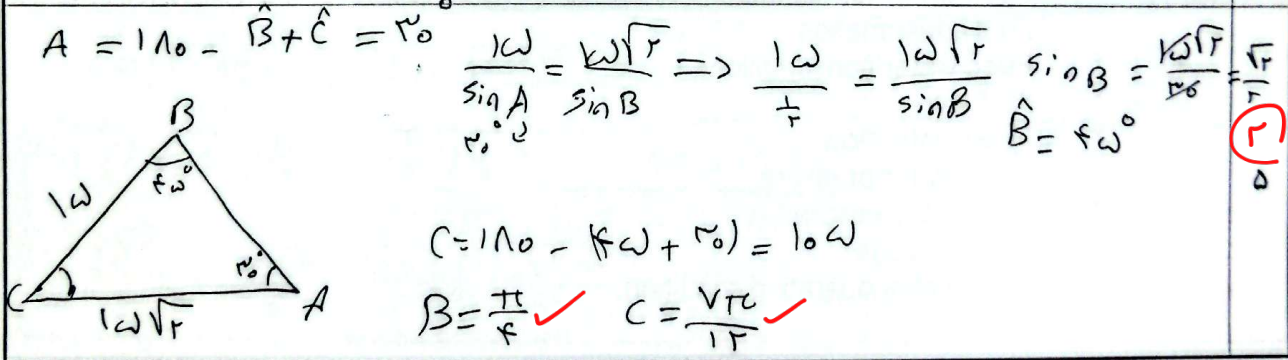 A = ۱۸۰ - B̂ + Ĉ = ۳۰°
۱۵/sin A = ۱۵√۲/sin B => ۱۵/(۱/۲) = ۱۵√۲/sin B sin B = ۱۵√۲/۳۰ = √۲/۲
۳۰°
B̂ = ۴۵°
۲
۵
B
۴۵°
۱۵
۳۰°
C
A
۱۵√۲
C = ۱۸۰ - (۴۵ + ۳۰) = ۱۰۵
B = π/۴ ✓ C = ۷π/۱۲ ✓